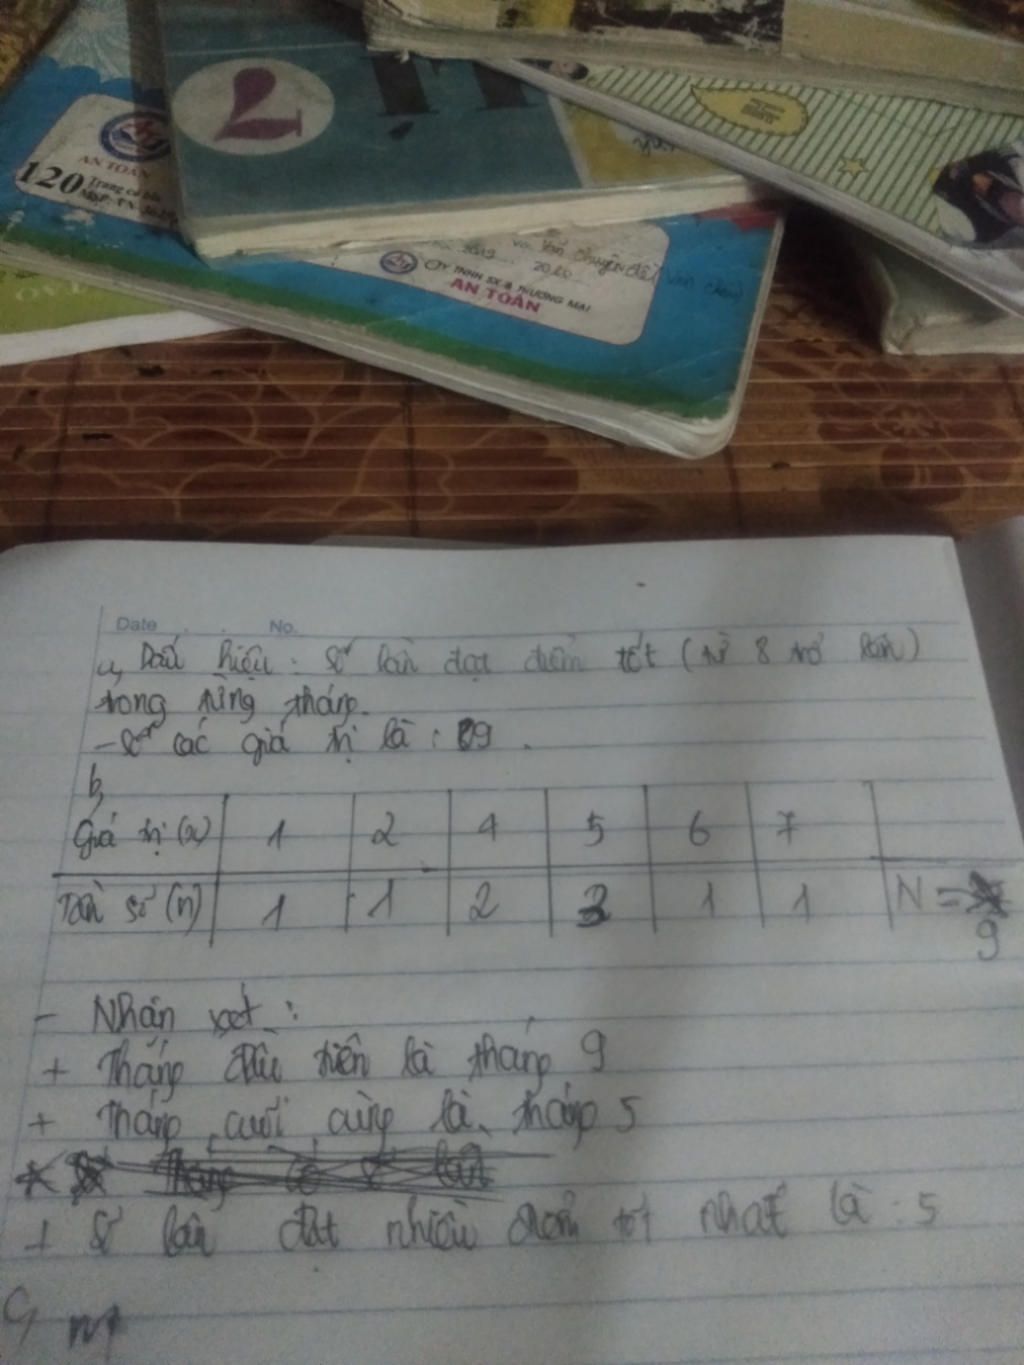 7
AN TOÀN
120 Trang
2019 20.20
CTY TNHH SX & THƯƠNG MẠI
AN TOÀN
Date . . No.
a, Dấu hiệu : Số lần đạt điểm tốt (từ 8 trở lên)
trong từng tháng.
- Số các giá trị là : 9 .
b,
Giá trị (x) 1 2 4 5 6 7
Tần số (n) 1 1 2 3 1 1 N = 9
- Nhận xét :
+ Tháng đầu tiên là tháng 9
+ Tháng cuối cùng là tháng 5
+ Số lần đạt nhiều điểm tốt nhất là : 5
c,